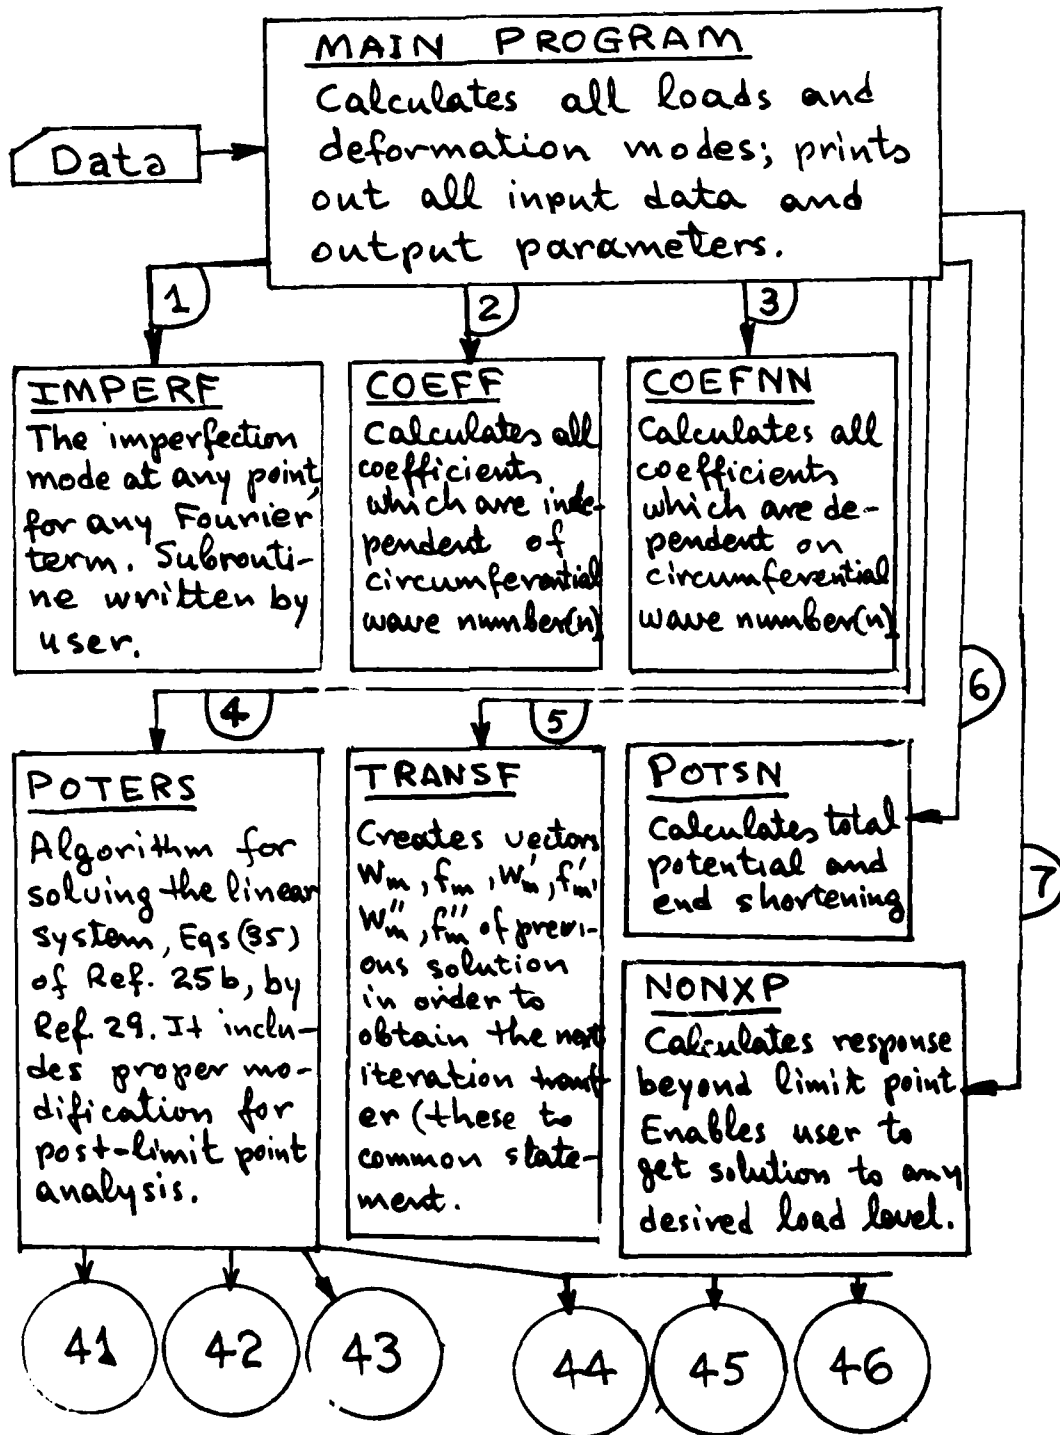 MAIN PROGRAM
Calculates all loads and
deformation modes; prints
out all input data and
output parameters.
Data
1
2
3
IMPERF
The imperfection
mode at any point,
for any Fourier
term. Subrouti-
ne written by
user.
COEFF
Calculates all
coefficients
which are inde-
pendent of
circumferential
wave number(n)
COEFNN
Calculates all
coefficients
which are de-
pendent on
circumferential
wave number(n)
4
5
6
7
POTERS
Algorithm for
solving the linear
system, Eqs(35)
of Ref. 25b, by
Ref. 29. It inclu-
des proper mo-
dification for
post-limit point
analysis.
TRANSF
Creates vectors
Wm, fm, W'm, f'm,
W''m, f''m of previ-
ous solution
in order to
obtain the next
iteration transf
er (these to
common state-
ment.
POTSN
Calculates total
potential and
end shortening
NONXP
Calculates response
beyond limit point
Enables user to
get solution to any
desired load level.
41
42
43
44
45
46